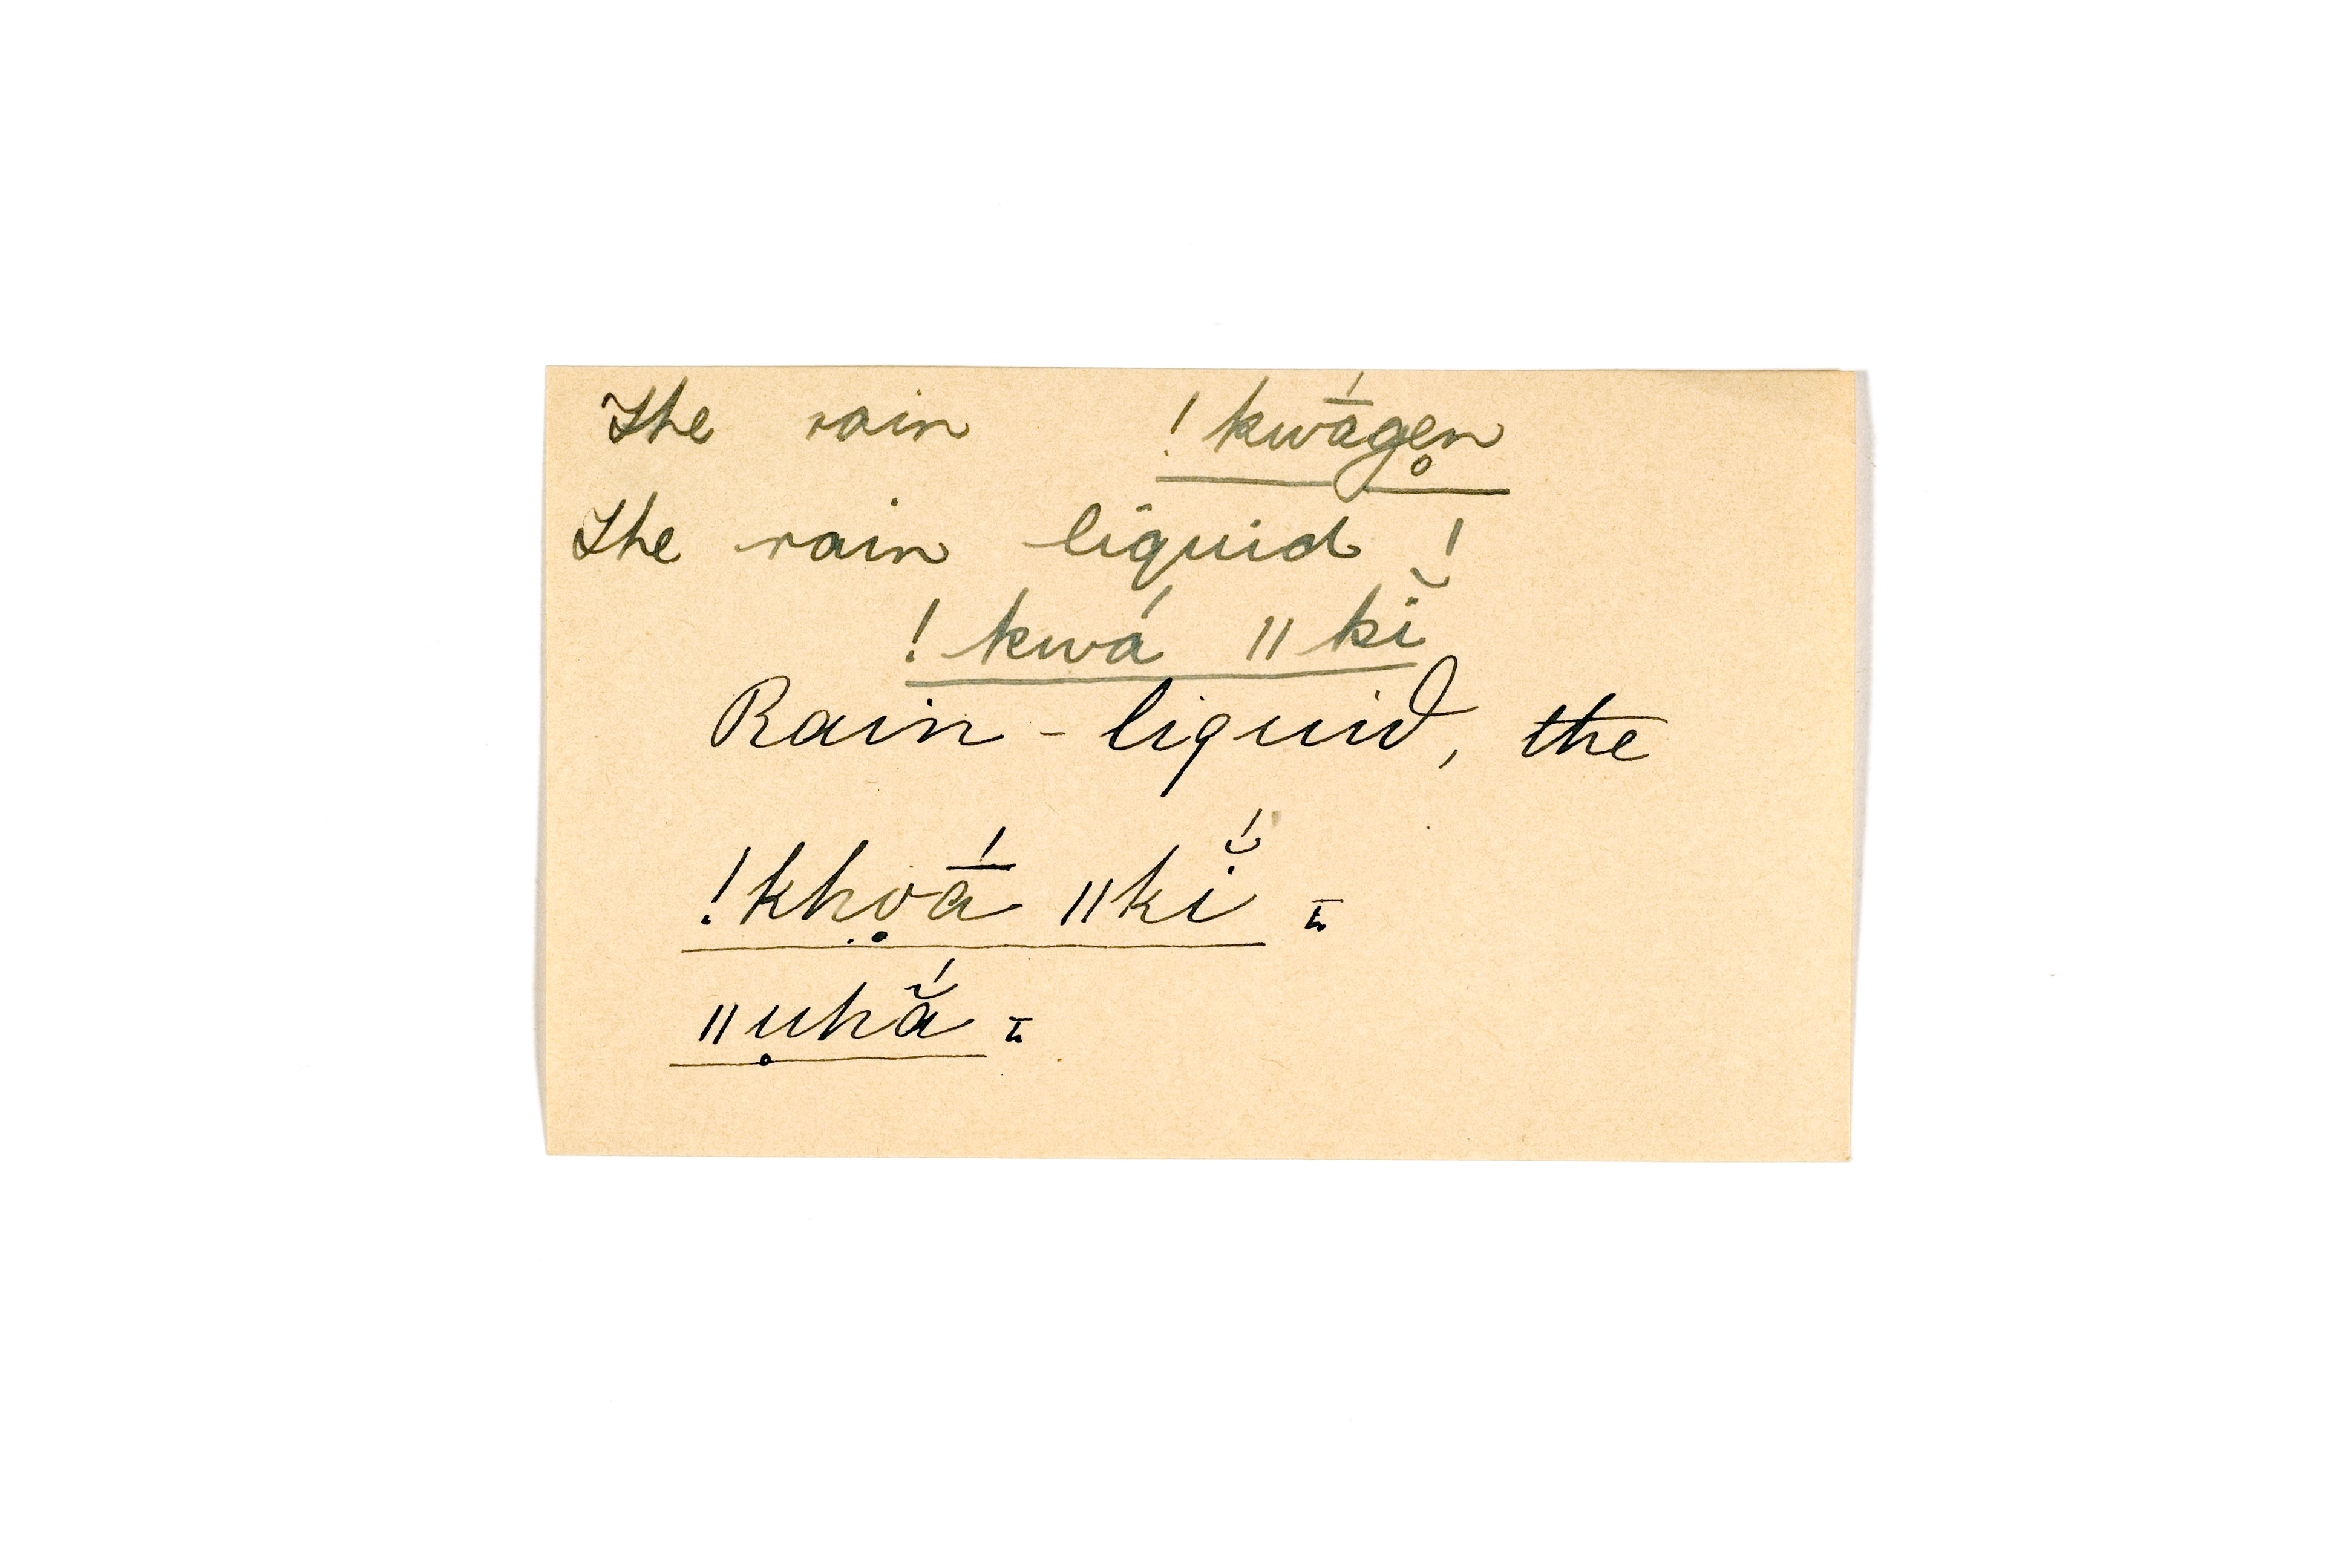 The rain !kwā́gen̥
The rain liquid
!kwá ǁkĭ́
Rain - liquid, the
!khọā́ ǁkĭ́ =
ǁụhắ =